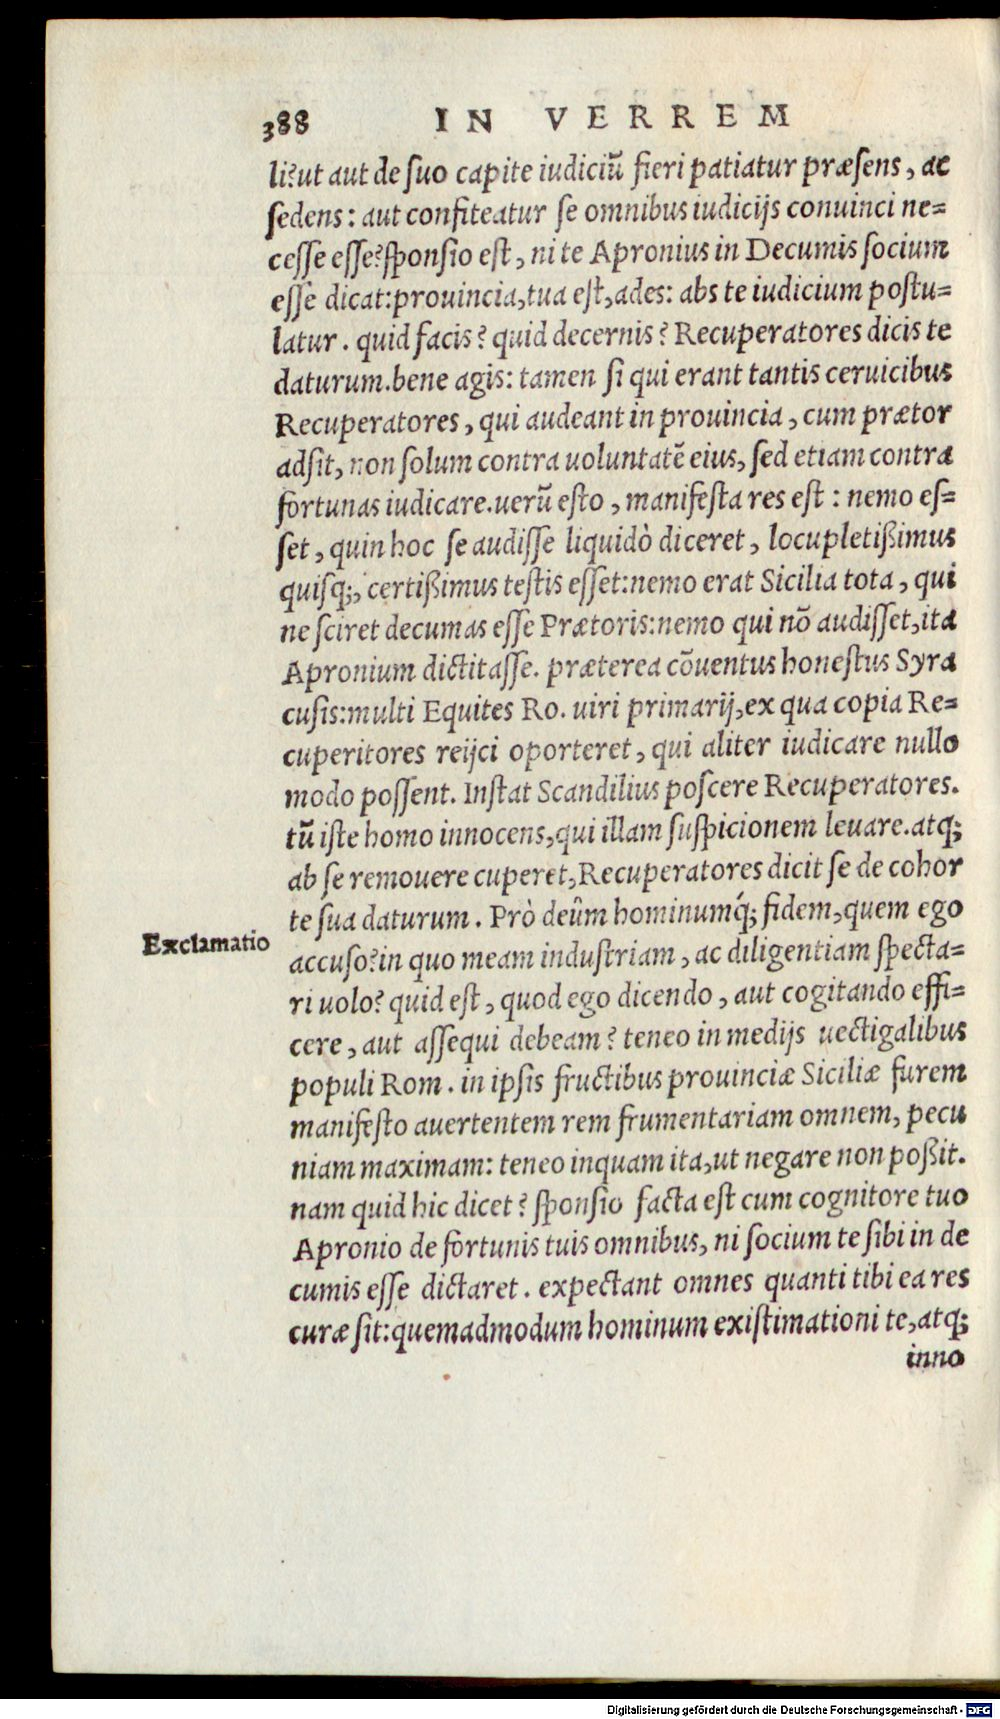 388 IN VERREM
li?ut aut de suo capite iudiciũ fieri patiatur præsens, ac
sedens: aut confiteatur se omnibus iudicijs conuinci ne=
cesse esse?sponsio est, ni te Apronius in Decumis socium
esse dicat:prouincia,tua est,ades: abs te iudicium postu=
latur. quid facis? quid decernis? Recuperatores dicis te
daturum.bene agis: tamen si qui erant tantis ceruicibus
Recuperatores, qui audeant in prouincia, cum prætor
adsit, non solum contra uoluntatẽ eius, sed etiam contra
fortunas iudicare.uerũ esto, manifesta res est: nemo es=
set, quin hoc se audisse liquidò diceret, locupletißimus
quisq;, certißimus testis esset:nemo erat Sicilia tota, qui
ne sciret decumas esse Prætoris:nemo qui nõ audisset,ita
Apronium dictitasse. præterea cõuentus honestus Syra
cusis:multi Equites Ro. uiri primarij,ex qua copia Re=
cuperitores reijci oporteret, qui aliter iudicare nullo
modo possent. Instat Scandilius poscere Recuperatores.
tũ iste homo innocens,qui illam suspicionem leuare.atq;
ab se remouere cuperet,Recuperatores dicit se de cohor
te sua daturum. Prò deûm hominumq́; fidem,quem ego
Exclamatio
accuso?in quo meam industriam, ac diligentiam specta=
ri uolo? quid est, quod ego dicendo, aut cogitando effi=
cere, aut assequi debeam? teneo in medijs uectigalibus
populi Rom. in ipsis fructibus prouinciæ Siciliæ furem
manifesto auertentem rem frumentariam omnem, pecu
niam maximam: teneo inquam ita,ut negare non poßit.
nam quid hic dicet? sponsio facta est cum cognitore tuo
Apronio de fortunis tuis omnibus, ni socium te sibi in de
cumis esse dictaret. expectant omnes quanti tibi ea res
curæ sit:quemadmodum hominum existimationi te,atq;
inno
Digitalisierung gefördert durch die Deutsche Forschungsgemeinschaft - DFG